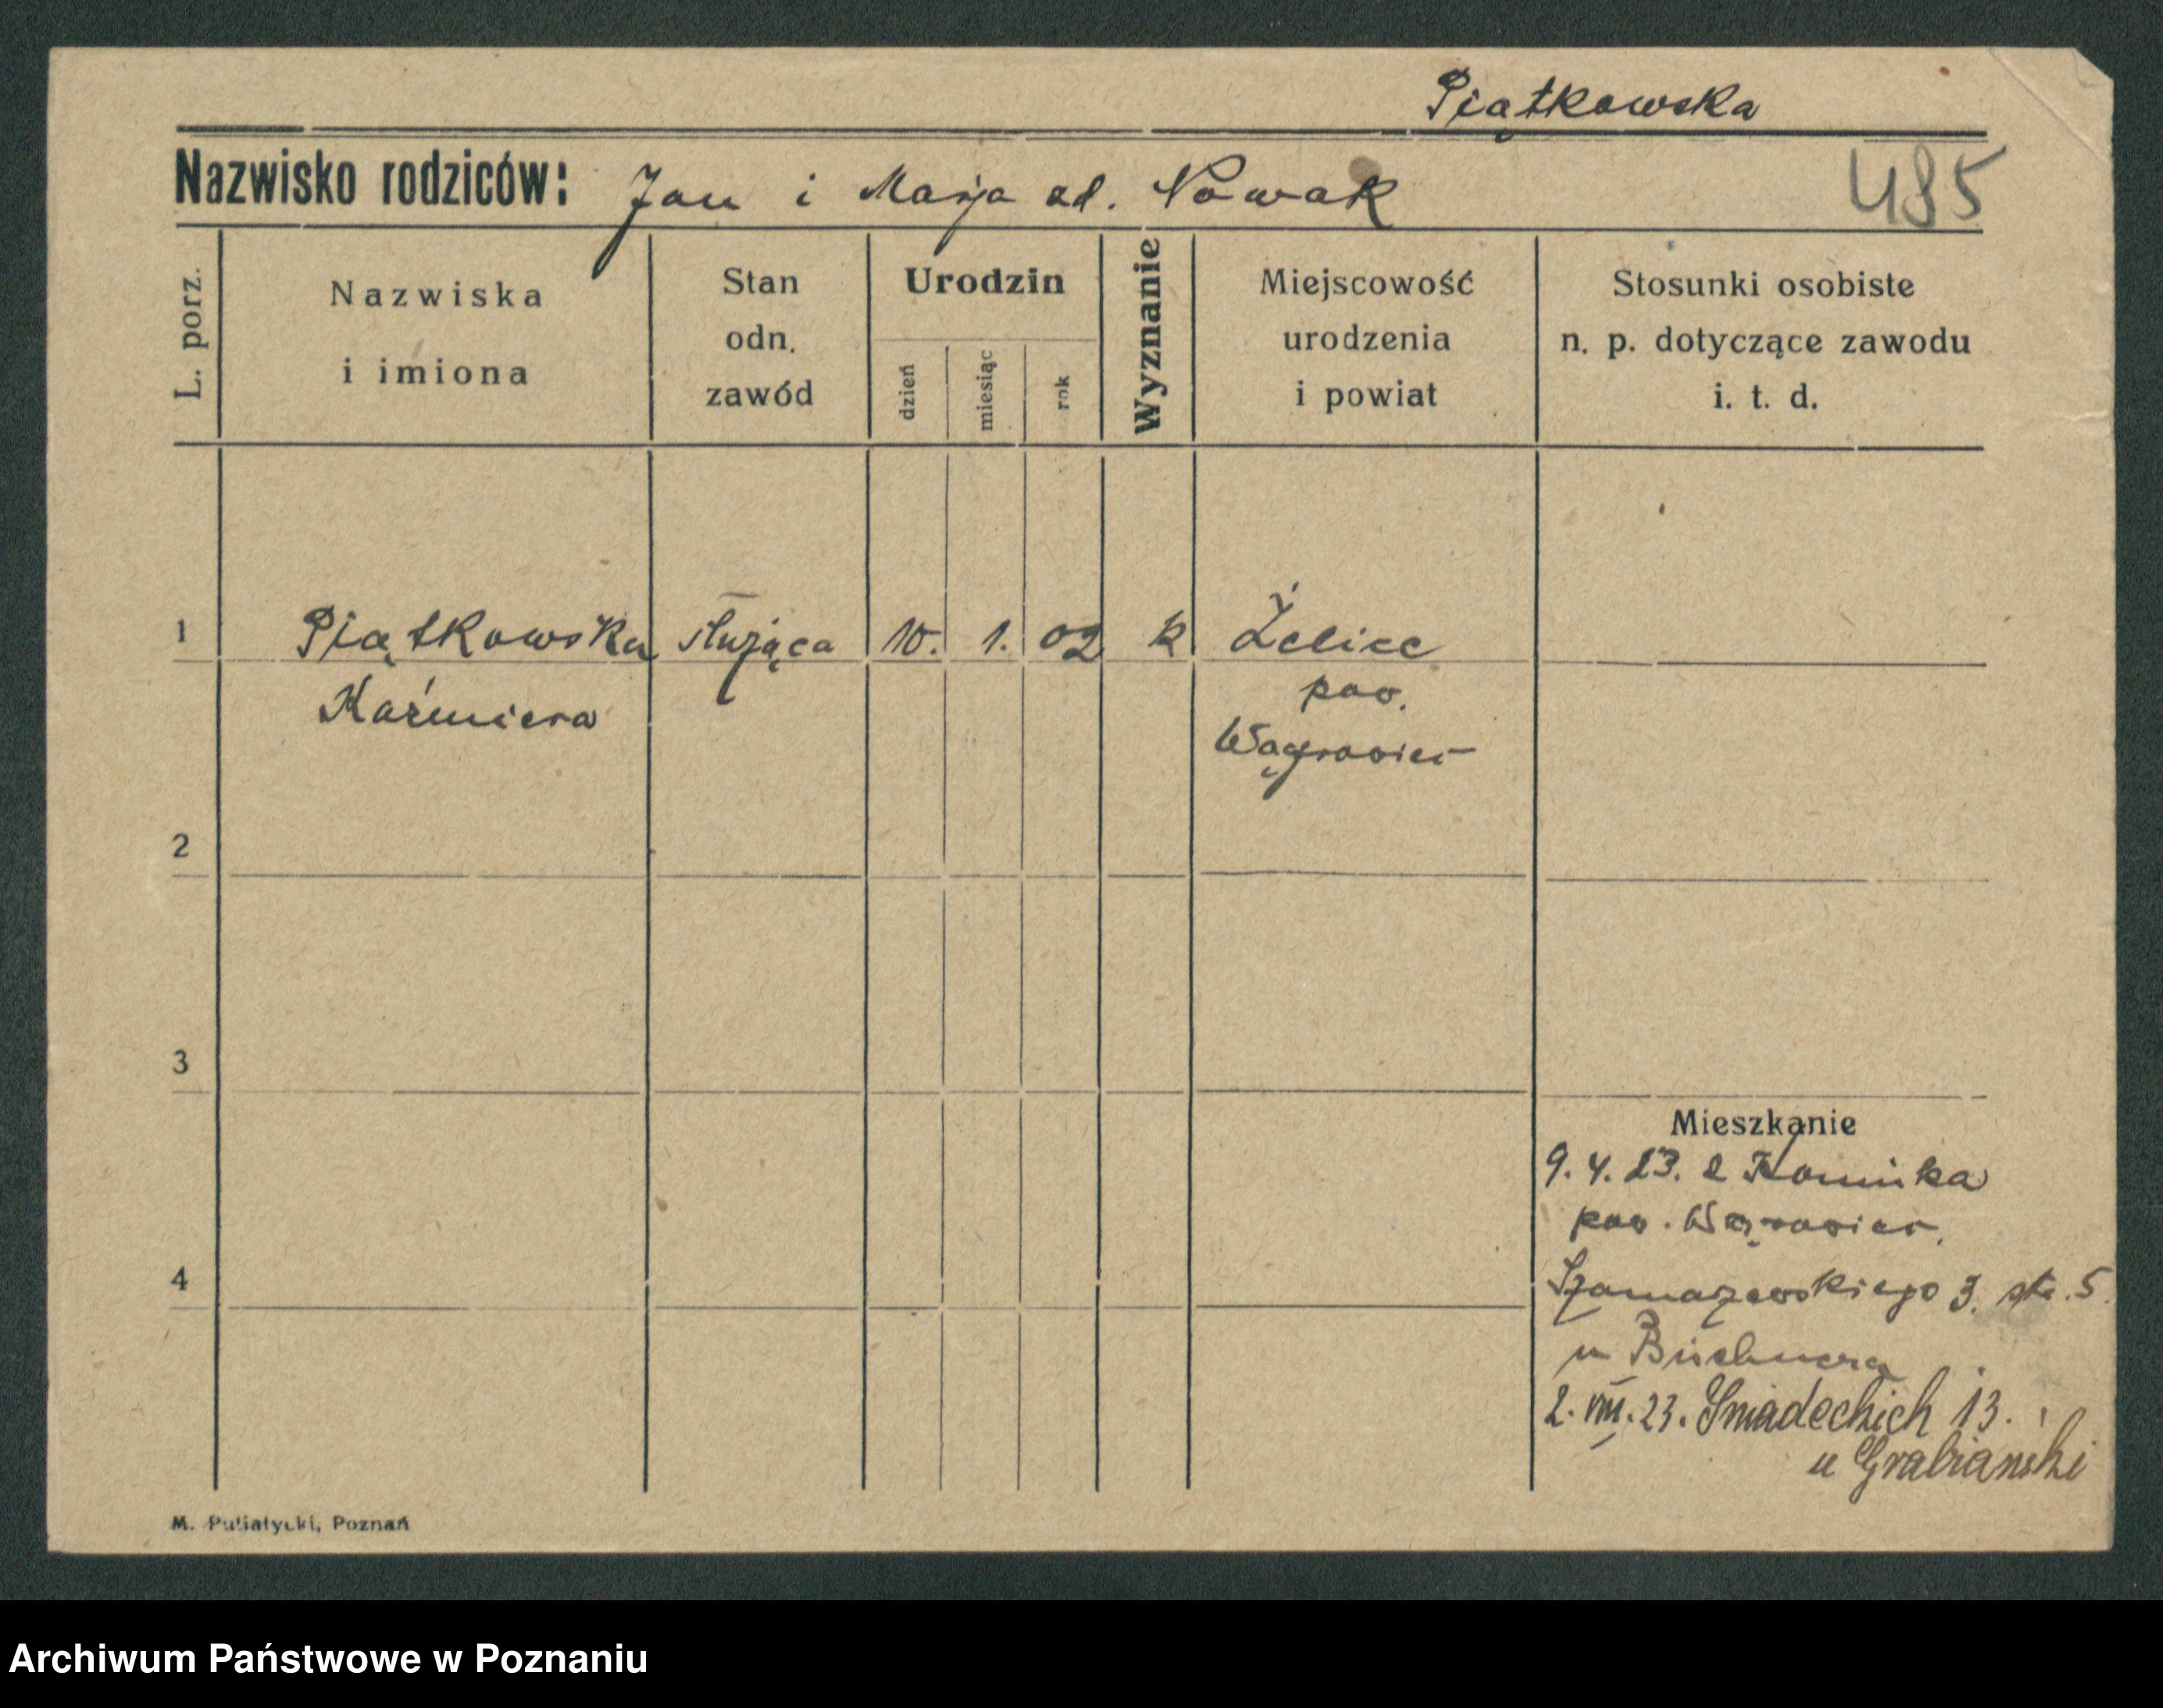 Piątkowska
Nazwisko rodziców: Jan i Marja zd. Nowak
485
L. porz.
Nazwiska
i imiona
Stan
odn.
zawód
Urodzin
dzień
miesiąc
rok
Wyznanie
Miejscowość
urodzenia
i powiat
Stosunki osobiste
n. p. dotyczące zawodu
i. t. d.
1 Piątkowska służąca 10. 1. 02 k Żelice
Kaźmiera pow.
Wągrowiec
2
3
Mieszkanie
9. 4. 23. z
pow. Wągrowiec.
4
Szamarzewskiego 3. ptr. 5.
u Büchnera
2. VIII. 23. Śniadeckich 13.
u Grabianski
M. Putiatycki, Poznań
Archiwum Państwowe w Poznaniu